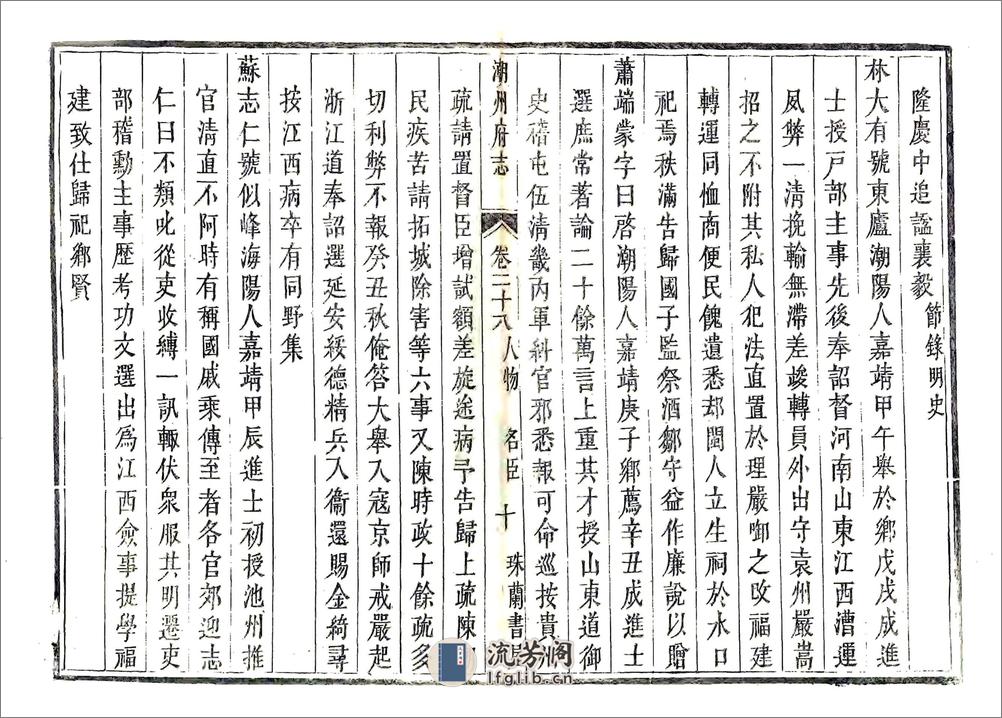 隆慶中追諡襄毅 節錄明史
林大有號東廬潮陽人嘉靖甲午舉於鄉戊戌成進
士授戶部主事先後奉詔督河南山東江西漕運
夙弊一清挽輸無滯差竣轉員外出守袁州嚴嵩
招之不附其私人犯法直置於理嚴啣之改福建
轉運同恤商便民餽遺悉却閩人立生祠於水口
祀焉秩滿告歸國子監祭酒鄒守益作廉說以贈
蕭端蒙字曰啓潮陽人嘉靖庚子鄉薦辛丑成進士
選庶常著論二十餘萬言上重其才授山東道御
史稽屯伍清畿內軍糾官邪悉報可命巡按貴
潮州府志 卷二十八 人物 名臣 十 珠蘭書
疏請置督臣增試額差旋途病予告歸上疏陳
民疾苦請拓城除害等六事又陳時政十餘疏多
切利弊不報癸丑秋俺答大舉入寇京師戒嚴起
浙江道奉詔選延安綏德精兵入衛還賜金綺尋
按江西病卒有同野集
蘇志仁號似峰海陽人嘉靖甲辰進士初授池州推
官清直不阿時有稱國戚乘傳至者各官郊迎志
仁曰不類叱從吏收縛一訊輙伏衆服其明遷吏
部稽勳主事歷考功文選出爲江西僉事提學福
建致仕歸祀鄉賢
流芳閣
lfglib.cn